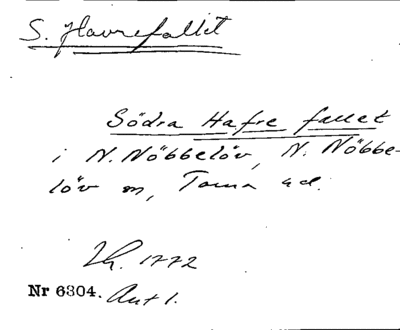 S. Havrefallet
Södra Hafre fallet
i N. Nöbbelöv, N. Nöbbe-
löv sn, Torna hd.
Lh. 1772
Nr 6304. Akt 1.